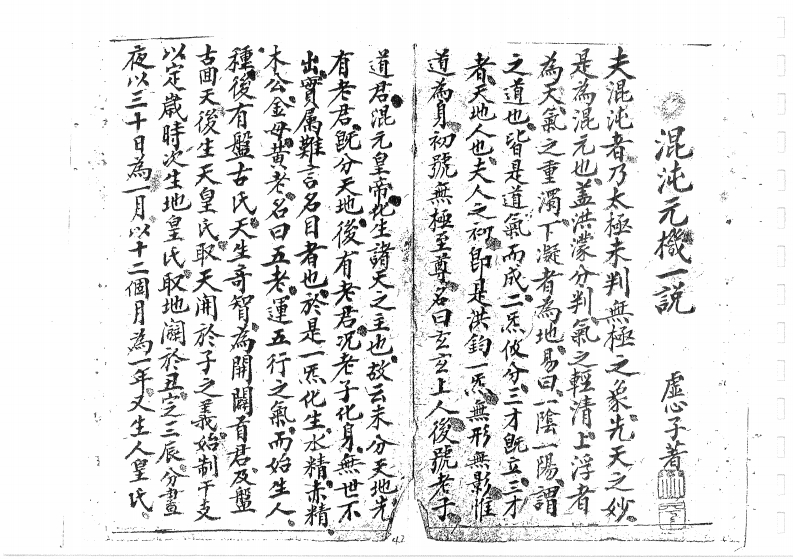 混沌元機一説
虛心子著
夫混沌者乃太極未判無極之象先天之妙
是為混元也盖洪濛分判氣之輕清上浮者
為天氣之重濁下凝者為地易曰一陰一陽謂
之道也皆是道氣而成二炁攸分三才既立三才
者天地人也夫人之初即是洪鈞一炁無形無影惟
道為身初號無極至尊名曰玄玄上人後號老子
道君混元皇帝化生諸天之主也故云未分天地先
有老君既分天地後有老君况老子化身無世不
出實属難言名目者也於是一炁化生水精赤精
木公金母黄老名曰五老運五行之氣而始生人
種後有盤古氏天生奇智為開闢首君及盤
古回天後生天皇氏取天開於子之義始制干支
以定歲時次生地皇氏取地闢於丑定三辰分晝
夜以三十日為一月以十二個月為一年又生人皇氏
42